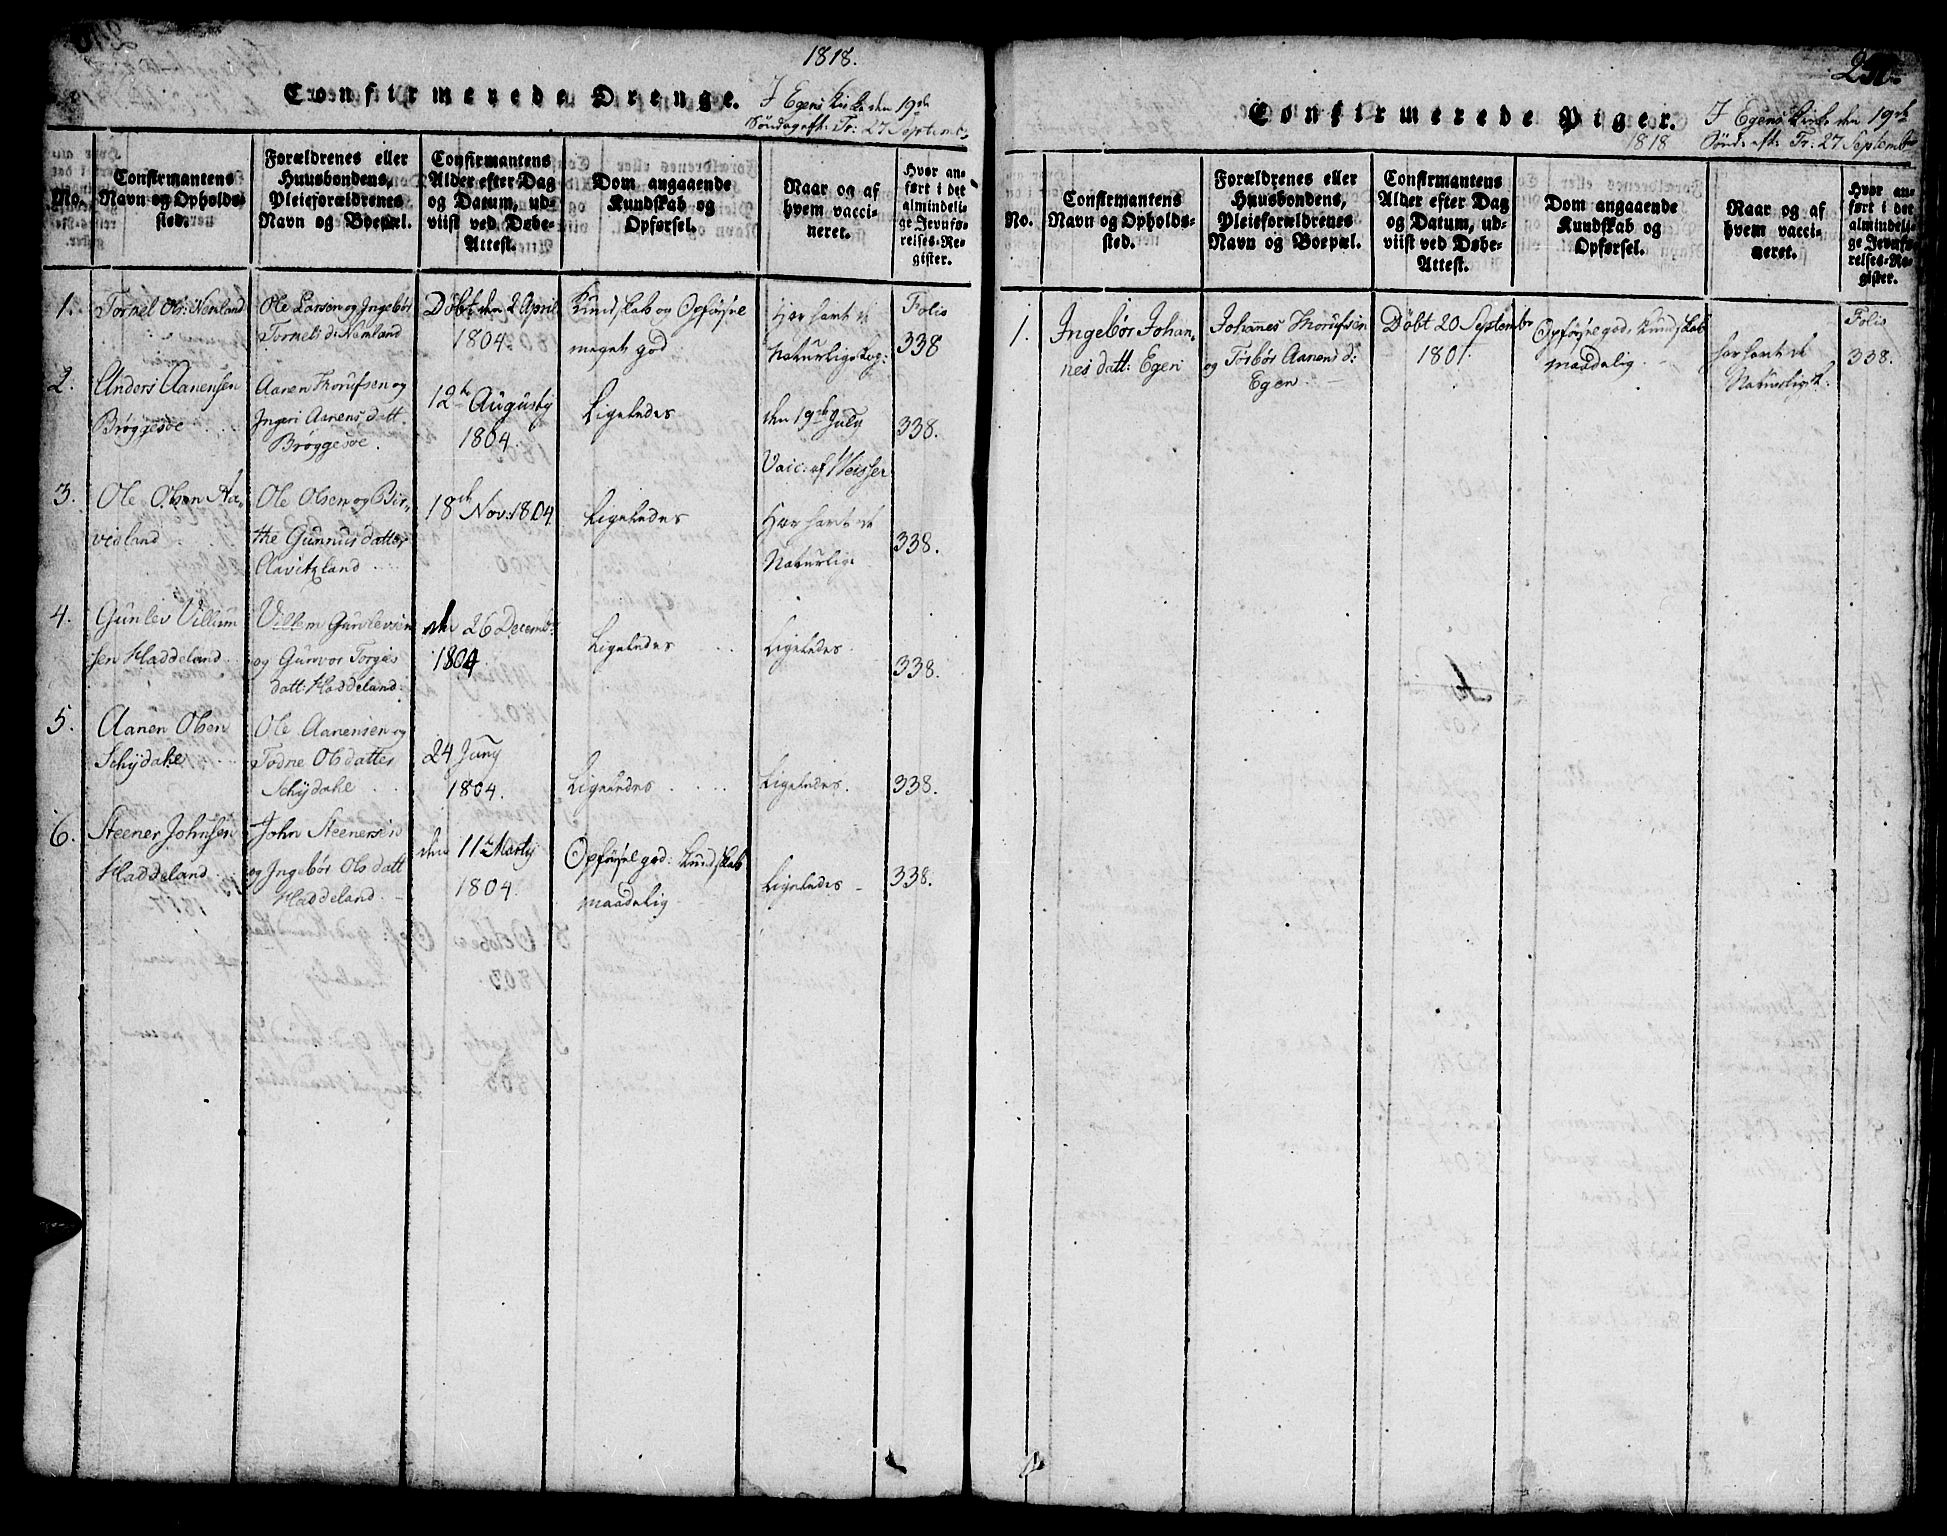 1818.
Confirmerede Drenge. I Egens Kirke den 19de
Søndag eft: Tr: 27 Septembr
No.
Confirmantens
Navn og Opholds-
sted.
Forældrenes eller
Huusbondens,
Pleieforældrenes
Navn og Boepæl.
Confirmantens
Alder efter Dag
og Datum, ud-
viist ved Døbe-
Attest.
Dom angaaende
Kundskab og
Opførsel.
Naar og af
hvem vacci-
neret.
Hvor an-
ført i det
almindeli-
ge Jevnfø-
relses-Re-
gister.
1. Tornel Ols: Nenland
Ole Larsen og Ingebór
Tornels d: Nenland
Döbt den 2 April
1804
Kundskab og Opførsel
meget god
Har havt de
Naturlige Kop:
Folio
338
2. Anders Aanensen
Bröggesöe
Aanen Thorufsen og
Ingeri Aanens datt.
Bröggesöe.
12te Augusty
1804.
Ligeledes
den 19de July
Vacc: af Weisser
338.
3. Ole Olsen Aa-
vedland
Ole Olsen og Bir-
the Gunnus datter
Aavitzland
18de Nov: 1804
Ligeledes
Har havt de
Naturlige
338.
4. Gunlev Villum
sen Haddeland
Villem Gunlevsen
og Gunvor Torgis
datt: Haddeland:
den 26 Decemb:
1804
Ligeledes
Ligeledes.
338.
5. Aanen Olsen
Schÿdahe
Ole Aanensen og
Todne Ols datter
Schÿdahe
24 Juny
1804.
Ligeledes
Ligeledes.
338.
6. Steener Johnsen
Haddeland
John Steenersen
og Ingebór Ols datt
Haddeland.
den 11te Marty
1804.
Opførsel god: Kundskab
maadelig
Ligeledes
338.
250
Confirmerede Piger. I Egens Kirk den 19de
1818 Sönd: eft: Tr: 27 Septembr
No.
Confirmantens
Navn og Opholds-
sted.
Forældrenes eller
Huusbondens,
Pleieforældrenes
Navn og Boepæl.
Confirmantens
Alder efter Dag
og Datum, ud-
viist ved Døbe-
Attest.
Dom angaaende
Kundskab og
Opførsel.
Naar og af
hvem vacci-
neret.
Hvor an-
ført i det
almindeli-
ge Jevnfø-
relses-Re-
gister.
1. Ingebór Johan-
nes datt: Egen
Johannes Thorufsen
og Torbór Aanens d:
Egen.
Döbt 20 Septembr
1801
Opførsel god, Kundskab
maadelig
har havt de
Naturlige K.
Folio
338.